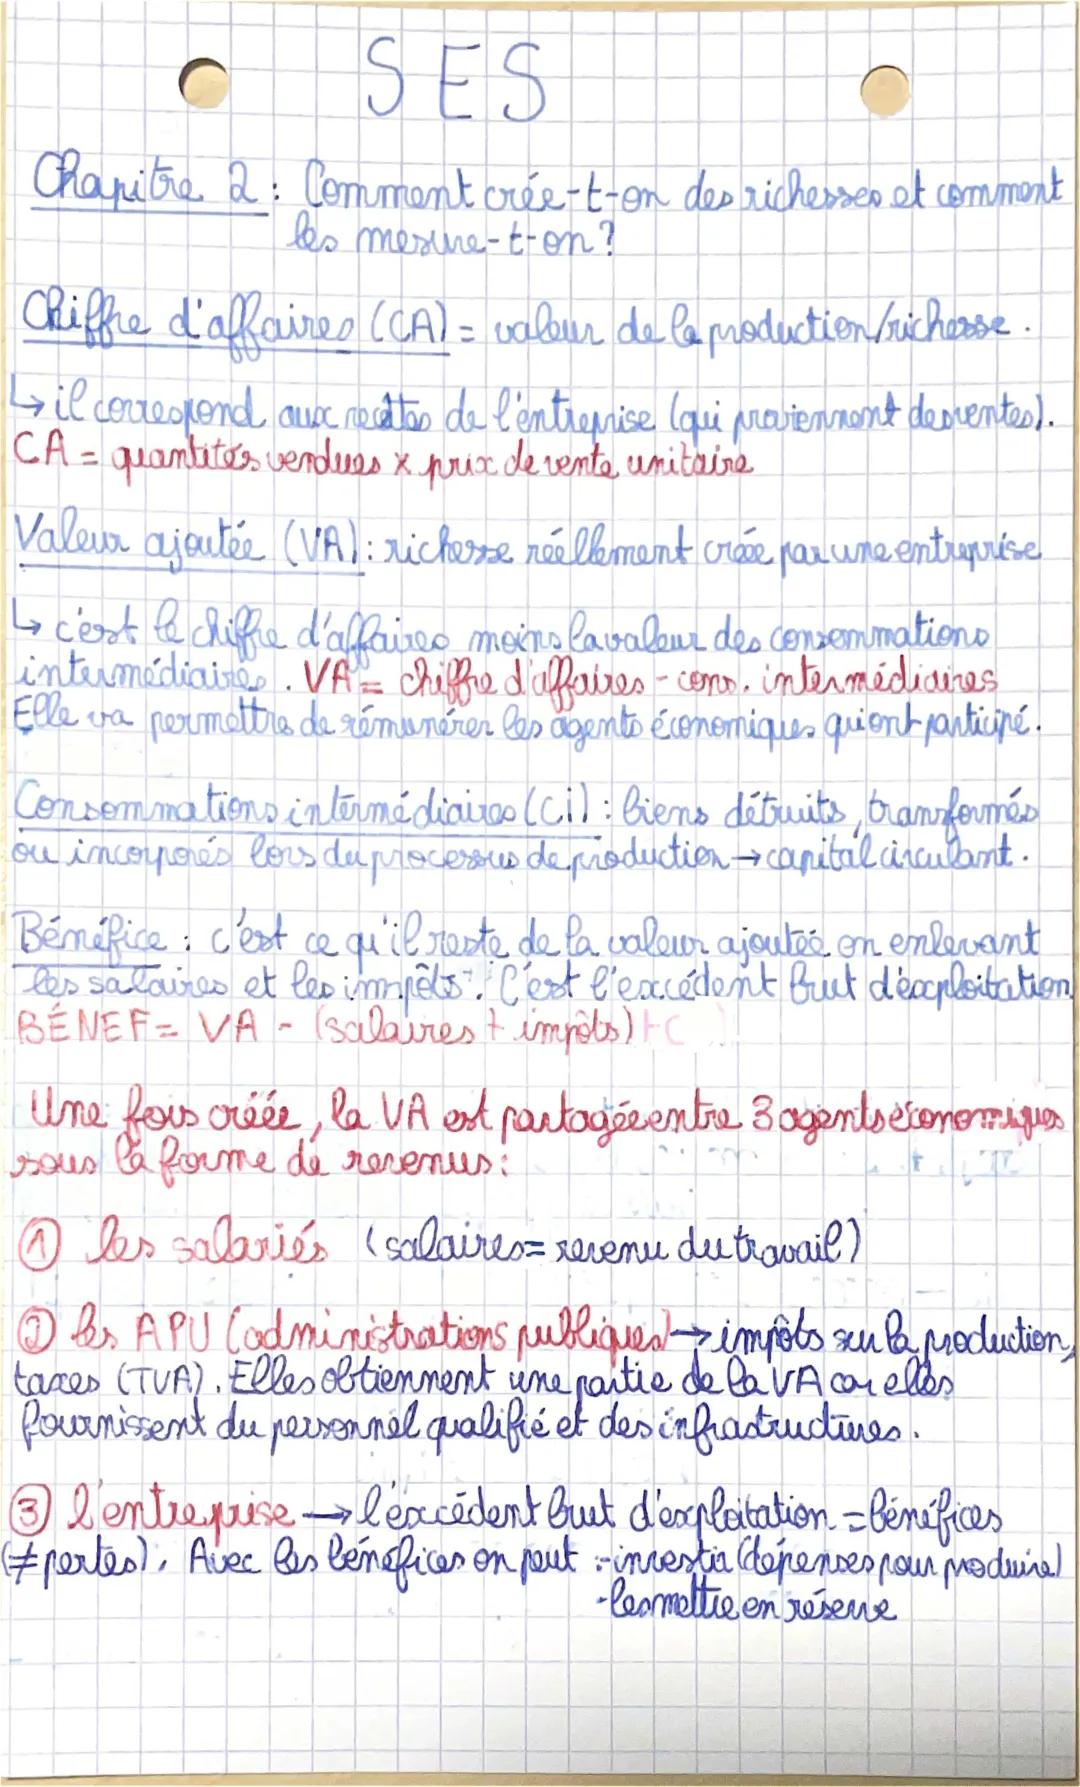 SES
Chapitre 2 : Comment crée-t-on des richesses et comment
les mesure-t-on ?
Chiffre d'affaires (CA) = valeur de la production/richesse.
↳ il correspond aux recettes de l'entreprise (qui proviennent des ventes).
CA = quantités vendues x prix de vente unitaire
Valeur ajoutée (VA) : richesse réellement créée par une entreprise
↳ c'est le chiffre d'affaires moins la valeur des consommations
intermédiaires. VA = chiffre d'affaires - cons. intermédiaires
Elle va permettre de rémunérer les agents économiques qui ont participé.
Consommations intermédiaires (Ci) : biens détruits, transformés
ou incorporés lors du processus de production → capital circulant.
Bénéfice : c'est ce qu'il reste de la valeur ajoutée en enlevant
les salaires et les impôts. C'est l'excédent brut d'exploitation
BÉNEF = VA - (salaires + impôts)
Une fois créée, la VA est partagée entre 3 agents économiques
sous la forme de revenus :
① les salariés (salaires = revenu du travail)
② les APU (administrations publiques) → impôts sur la production,
taxes (TVA). Elles obtiennent une partie de la VA car elles
fournissent du personnel qualifié et des infrastructures.
③ l'entreprise → l'excédent brut d'exploitation = bénéfices
(≠ pertes). Avec les bénéfices on peut : - investir (dépenses pour produire)
- les mettre en réserve